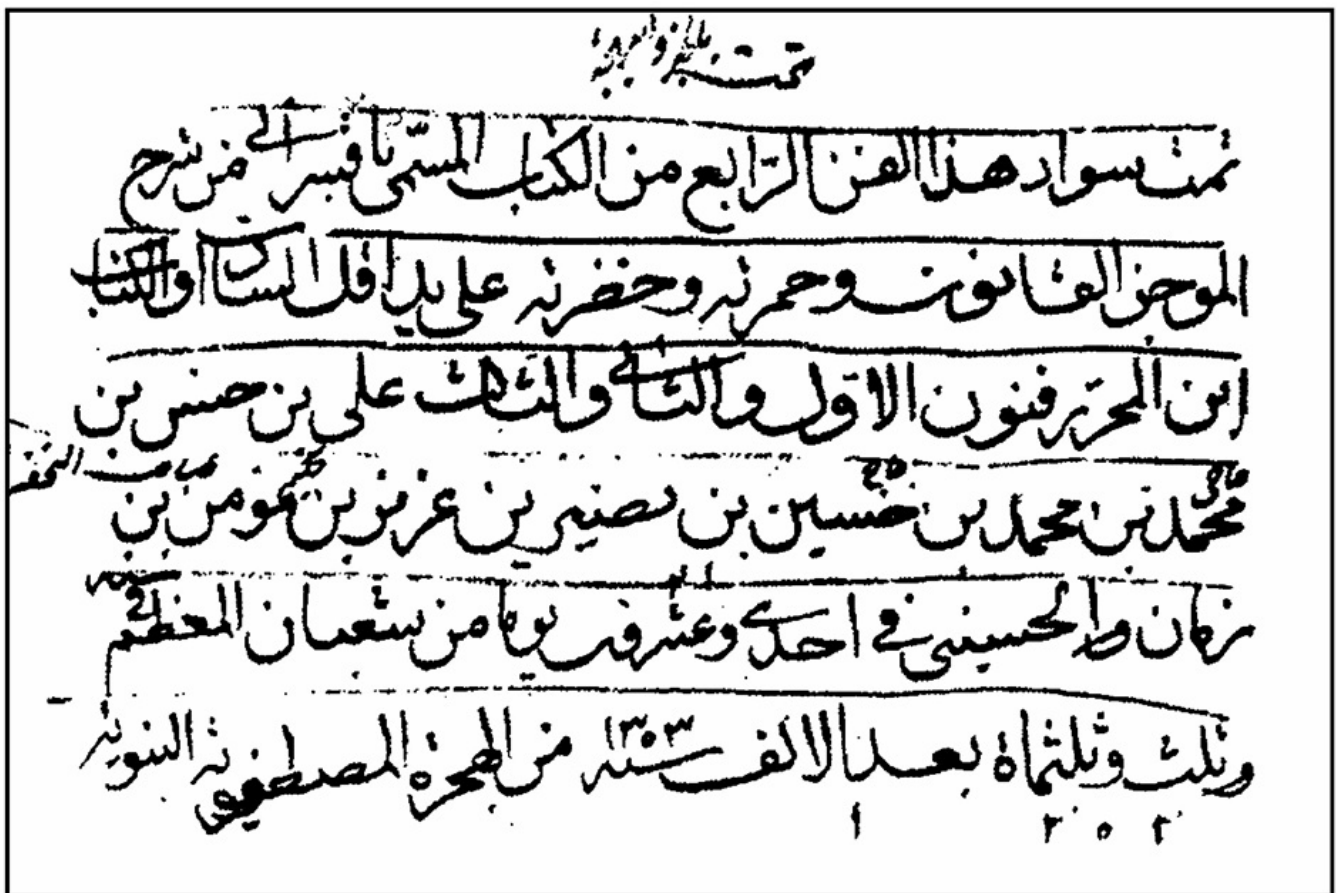 تمت بالخير و
تمت سواد هذا الفن الرابع من الكتاب المسمى باقسرائي من شرح
الموجز القانون وحمرته وخضرته على يد اقل السادات والكتاب
ابن المحرر فنون الاول والثاني والثالث علي بن حسن بن
حاجي محمد بن محمد بن حاجي حسين بن نصير بن عزيز بن مومن بن
زمان الحسيني في احدى وعشرون يوما من شعبان المعظم
وثلث وثلثماة بعد الالف سنه ١٣٥٣ من الهجرة المصطفوية النبوية